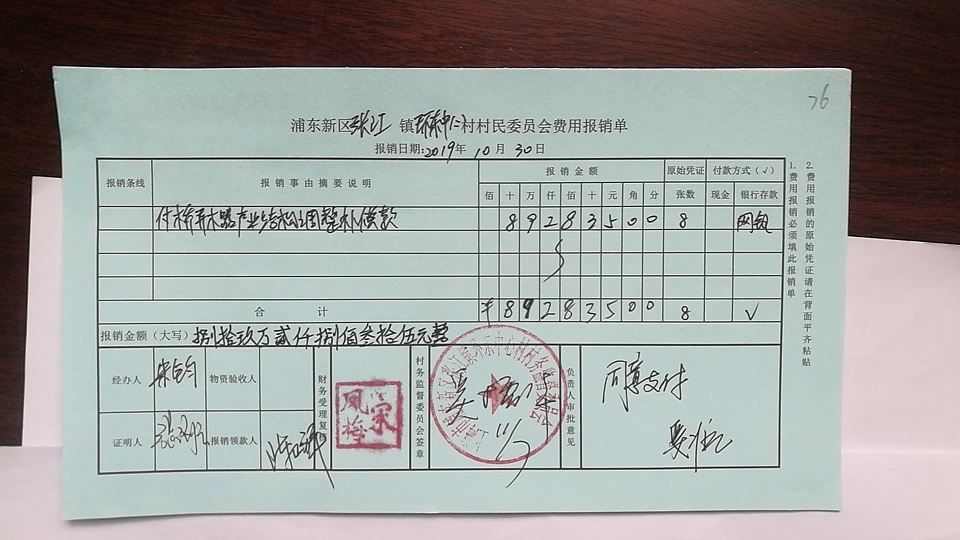 76
浦东新区张江镇环东中心村村民委员会费用报销单
报销日期:2019年10月30日
报销条线 报销事由摘要说明 报销金额 原始凭证 付款方式(√)
佰 十 万 仟 佰 十 元 角 分 张数 现金 银行存款
付桥弄木器产业结构调整补偿款 8 9 2 8 3 5 0 0 8 网银
合 计 ¥ 8 9 2 8 3 5 0 0 8 √
报销金额(大写) 捌拾玖万贰仟捌佰叁拾伍元整
经办人 物资验收人 财务受理复 村务监督委员会签章 负责人审批意见
宋凤梅
同意支付
11/7
证明人 报销领款人
1.费用报销必须填此报销单
2.费用报销的原始凭证请在背面平齐粘贴